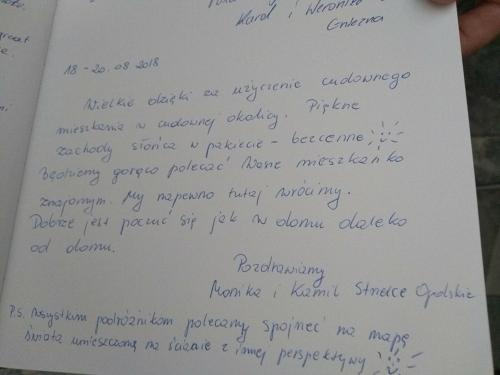 Karol i Weronika
Gniezna
18-20.08.2018
Wielkie dzięki za użyczenie cudownego
mieszkania w cudownej okolicy. Piękne
zachody słońca w pakiecie - bezcenne
Będziemy gorąco polecać Wasze mieszkanko
znajomym. My napewno tutaj wrócimy.
Dobrze jest poczuć się jak w domu daleko
od domu.
Pozdrawiamy
Monika i Kamil Strzelce Opolskie
P.S. Wszystkim podróżnikom polecamy spojrzeć na mapę
świata umieszczoną na ścianie z innej perspektywy